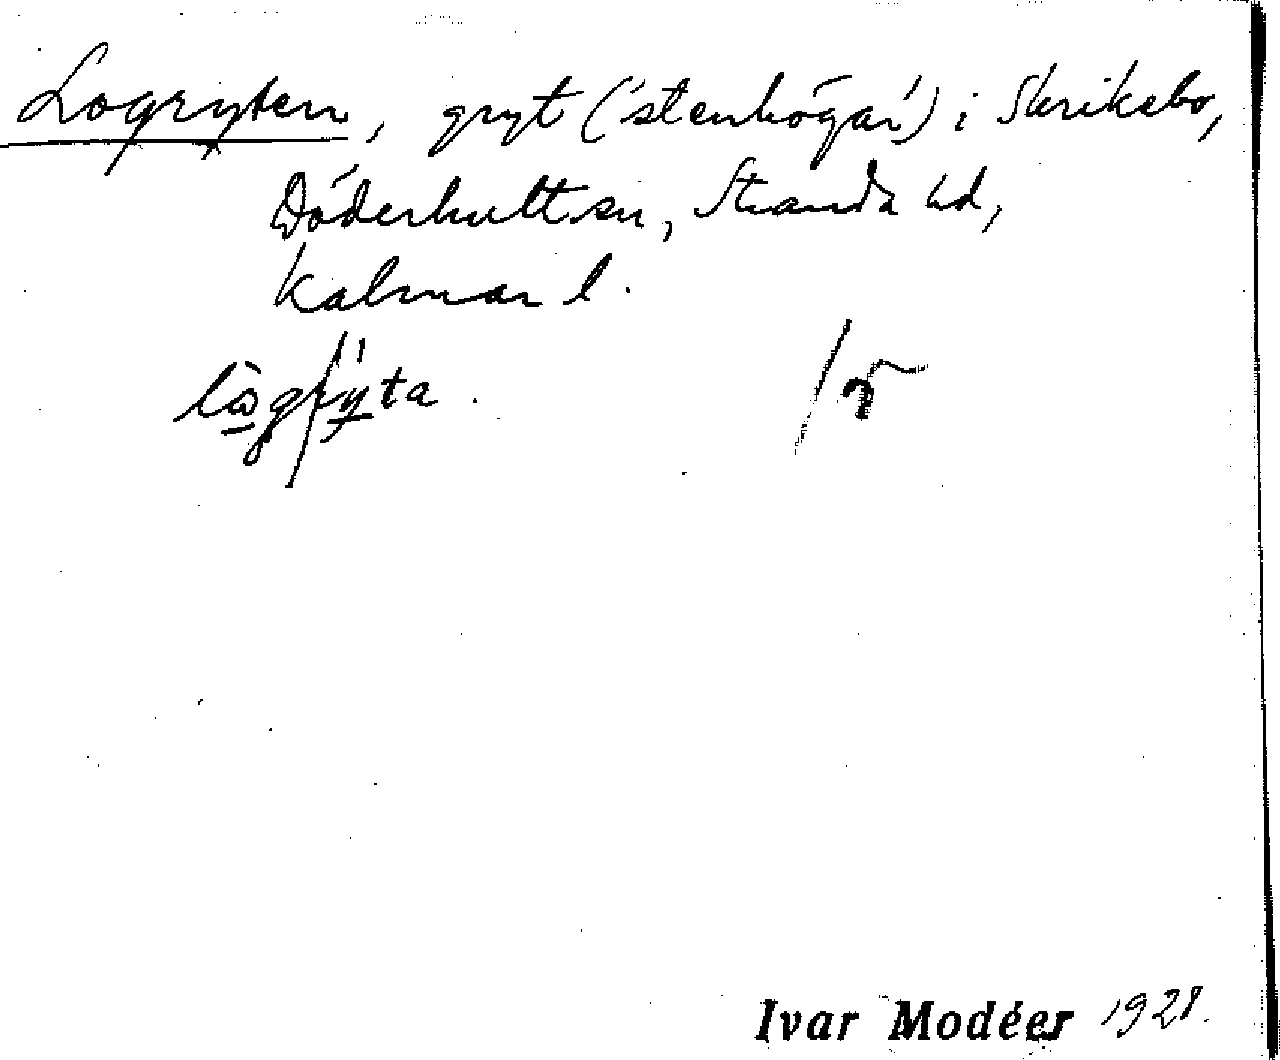 Logryten, gryt ('stenhögar') i Skrikebo,
Döderhult sn, Stranda hd,
Kalmar l.
Ivar Modéer 1928.